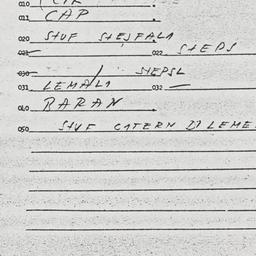 010
011 CAP
020 STUF STESFALA
021 022 STEPS
030 STEPSL
031 LEMALA 032
040 BARAN
050 STUF CATERN DI LEME